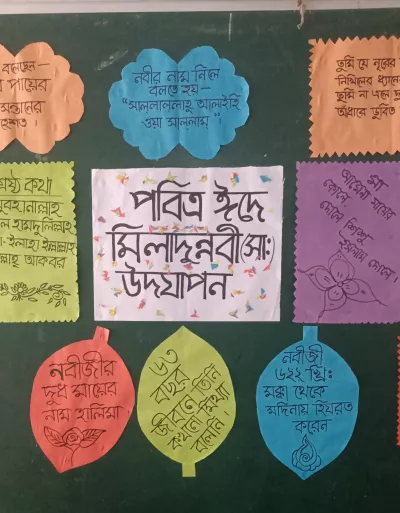 বলেছেন—
পায়ের
সন্তানের
হেশত।
নবীর নাম নিলে
বলতে হয়–
“সাল্লাল্লাহু আলাইহি
ওয়া সাল্লাম”।
তুমি যে নূরের
নিখিলের ধ্যানে
তুমি না এলে দু
আঁধারে ডুবিত
ষ্ঠ কথা
সুবহানাল্লাহ
ল হামদুলিল্লাহ
ইলাহা ইল্লাল্লাহ
ল্লাহু আকবর
পবিত্র ঈদে
মিলাদুন্নবী(সা:)
উদযাপন
আমেনা মায়ের
কোলে,
দোলে শিশু
ইসলাম দোলে।
নবীজীর
দুধ মায়ের
নাম হালিমা।
৬৩
বছর
জীবনে তিনি
কখনো মিথ্যা
বলেননি।
নবীজী
৬২২ খ্রি:
মক্কা থেকে
মদিনায় হিযরত
করেন